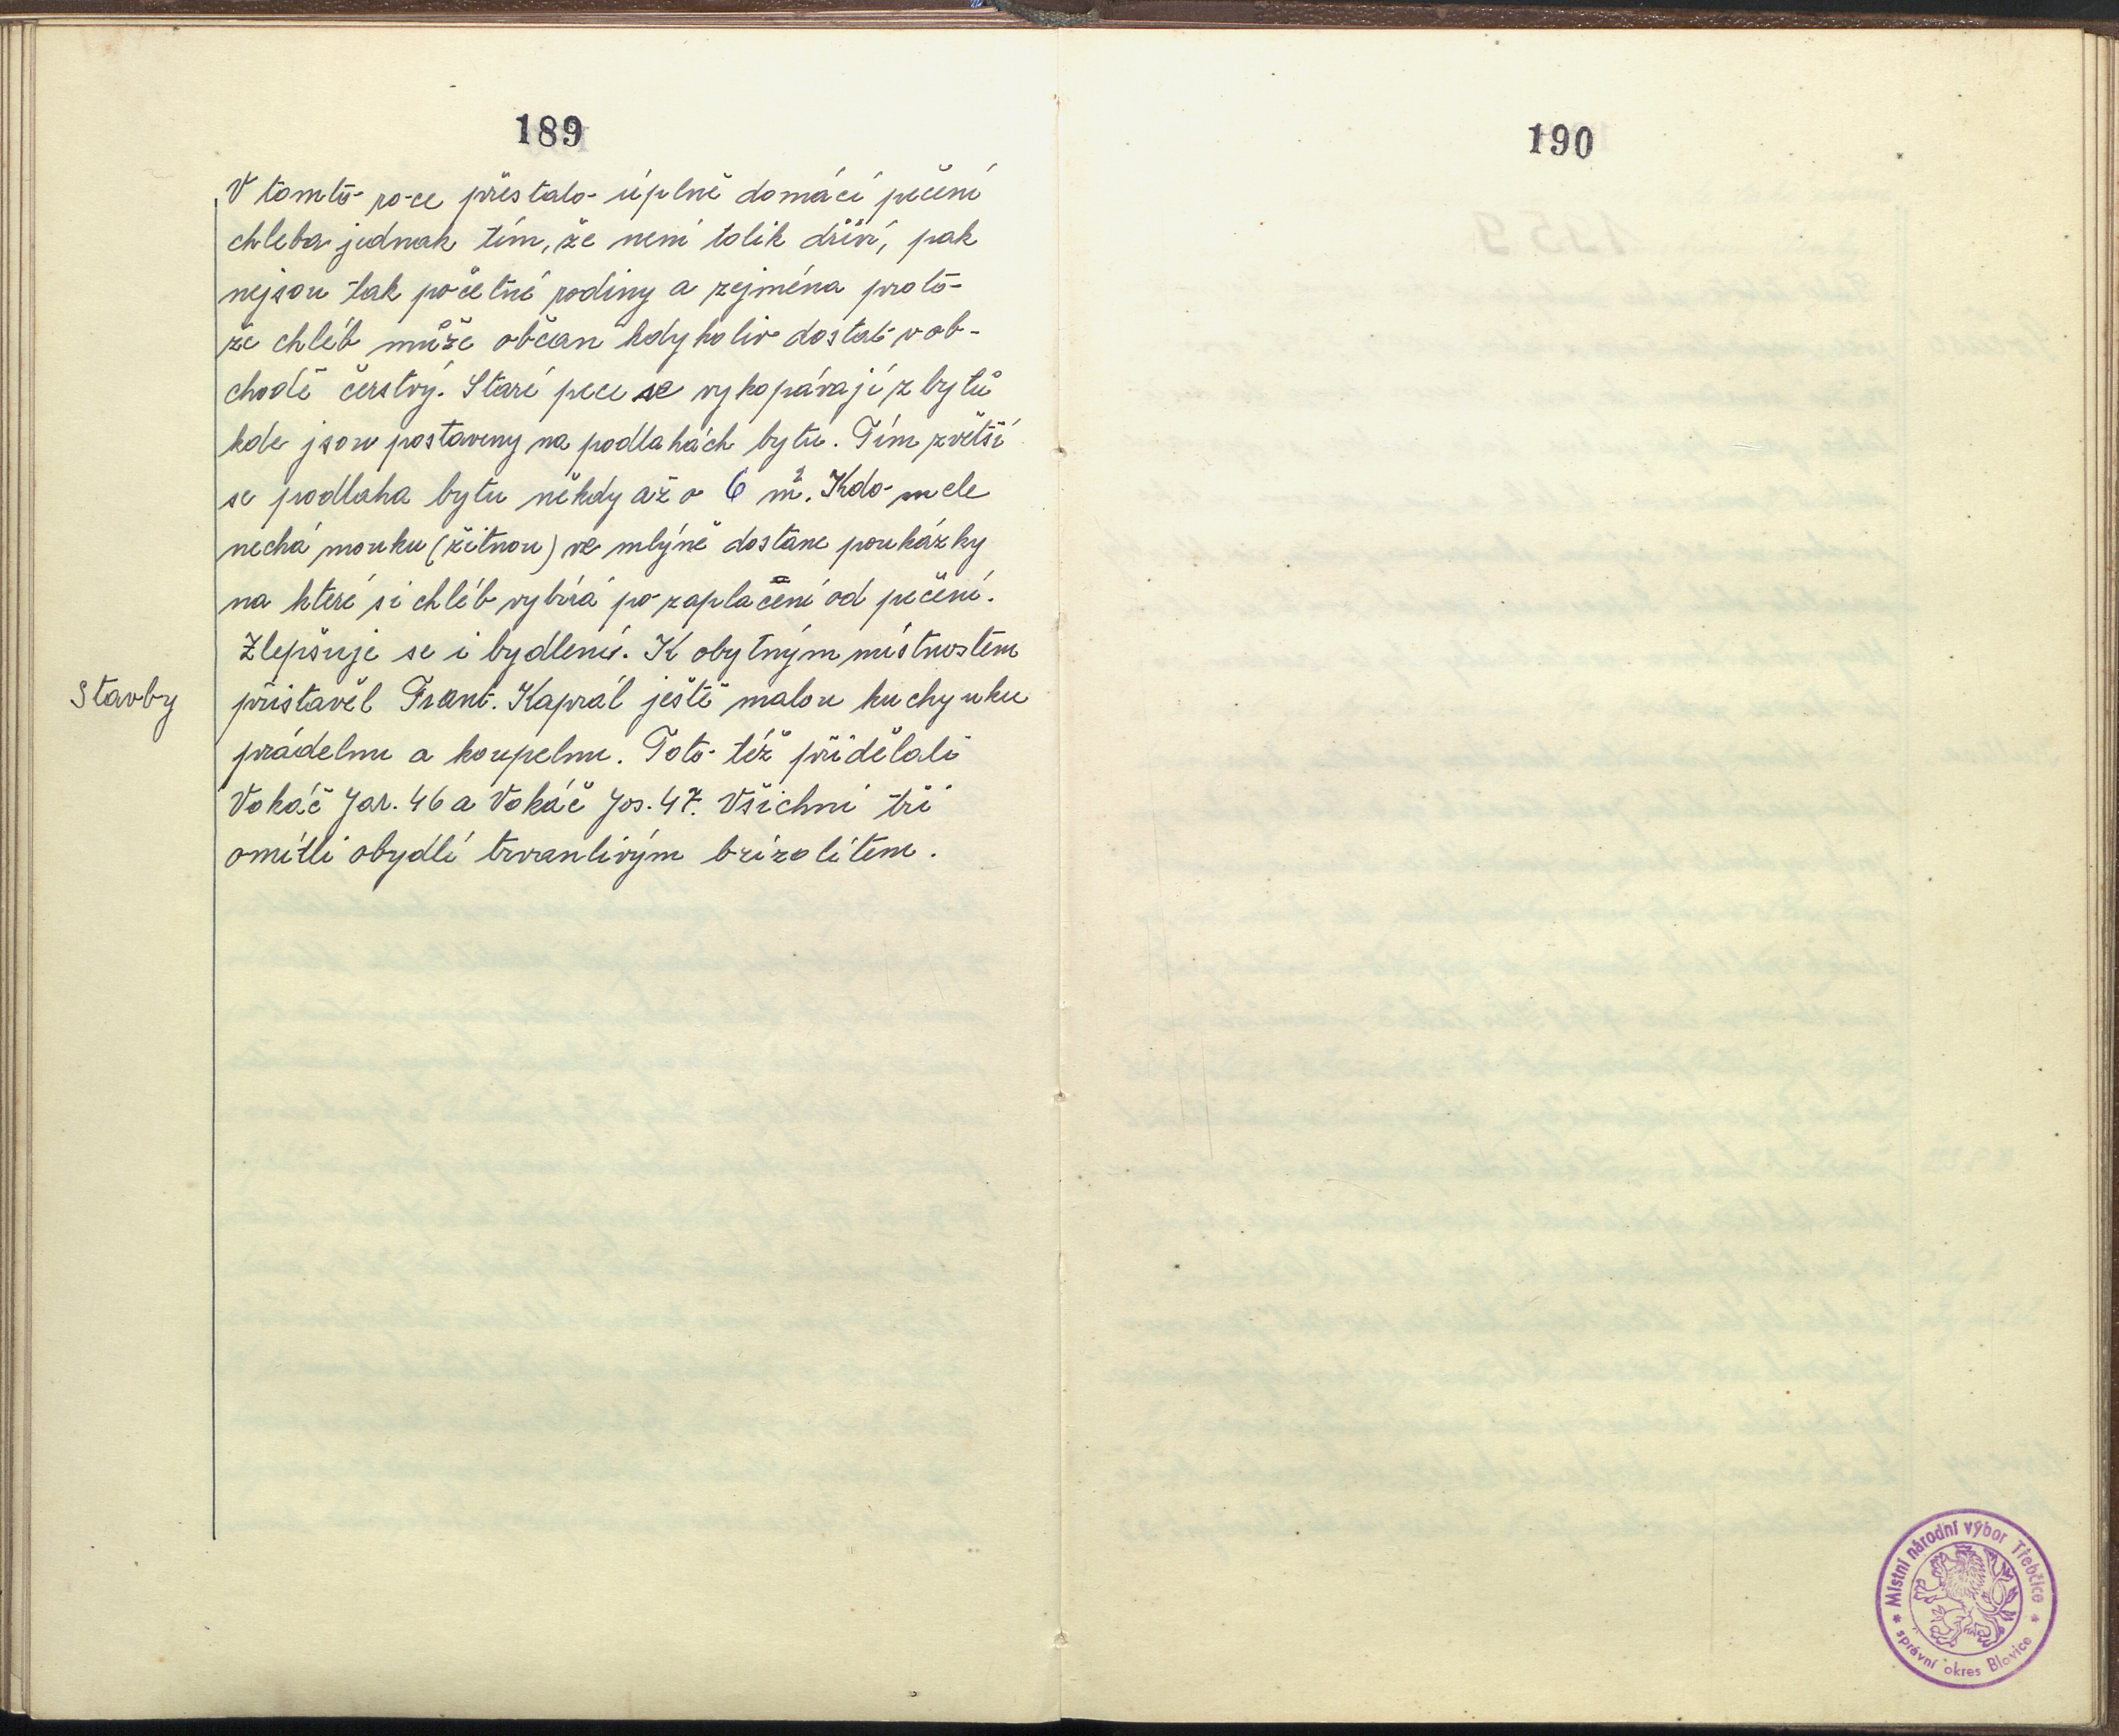 189
V tomto roce přestalo úplně domácí pečení
chleba jednak tím, že není tolik dříví, pak
nejsou tak početné rodiny a zejména proto-
že chléb může občan kdykoliv dostat v ob-
chodě čerstvý. Staré pece se vykopávají z bytů
kde jsou postaveny na podlahách bytu. Tím zvětší
se podlaha bytu někdy až o 6 m². Kdo mele
nechá mouku (žitnou) ve mlýně dostane poukázky
na které si chléb vybírá po zaplacení od pečení.
Zlepšuje se i bydlení. K obytným místnostem
Stavby
přistavěl Frant. Kaprál ještě malou kuchyňku
prádelnu a koupelnu. Toto též přidělali
Vokáč Jar. 46 a Vokáč Jos. 47. Všichni tři
omítli obydlí trvanlivým brizolitem.
190
* Místní národní výbor Třebčice *
správní okres Blovice